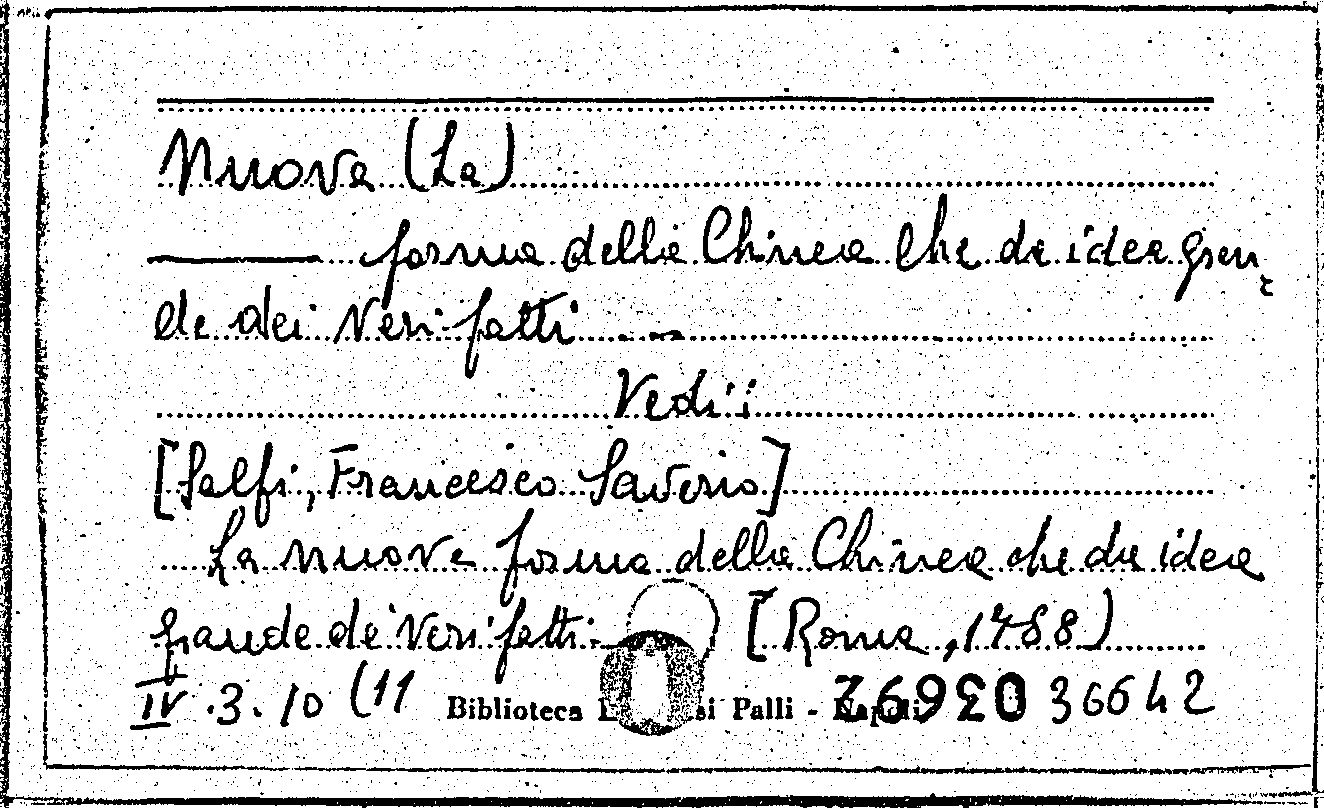 Nuova (La)
— forma della Chinea che da idea gran-
de dei veri fatti ...
Vedi:
[Salfi, Francesco Saverio]
La nuova forma della Chinea che da idea
grande de' veri fatti. [Roma, 1788)
IV .3. 10 (11 Biblioteca Palli - Napoli 36642